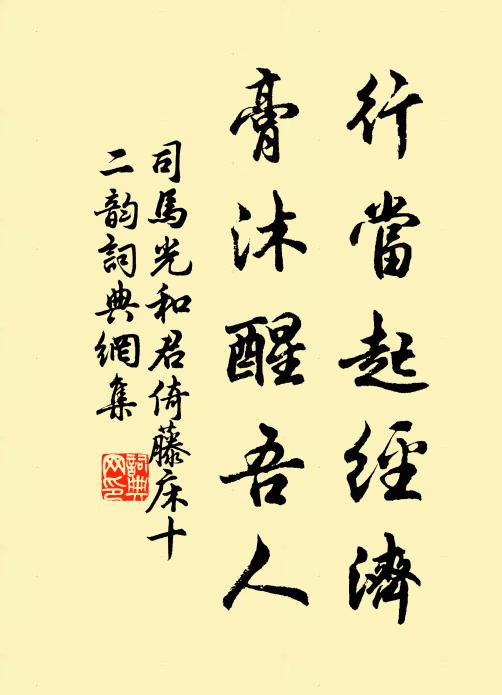 行當起經濟
膏沐醒吾人
司馬光和君倚藤床十
二韵詞典網集
詞典
网印